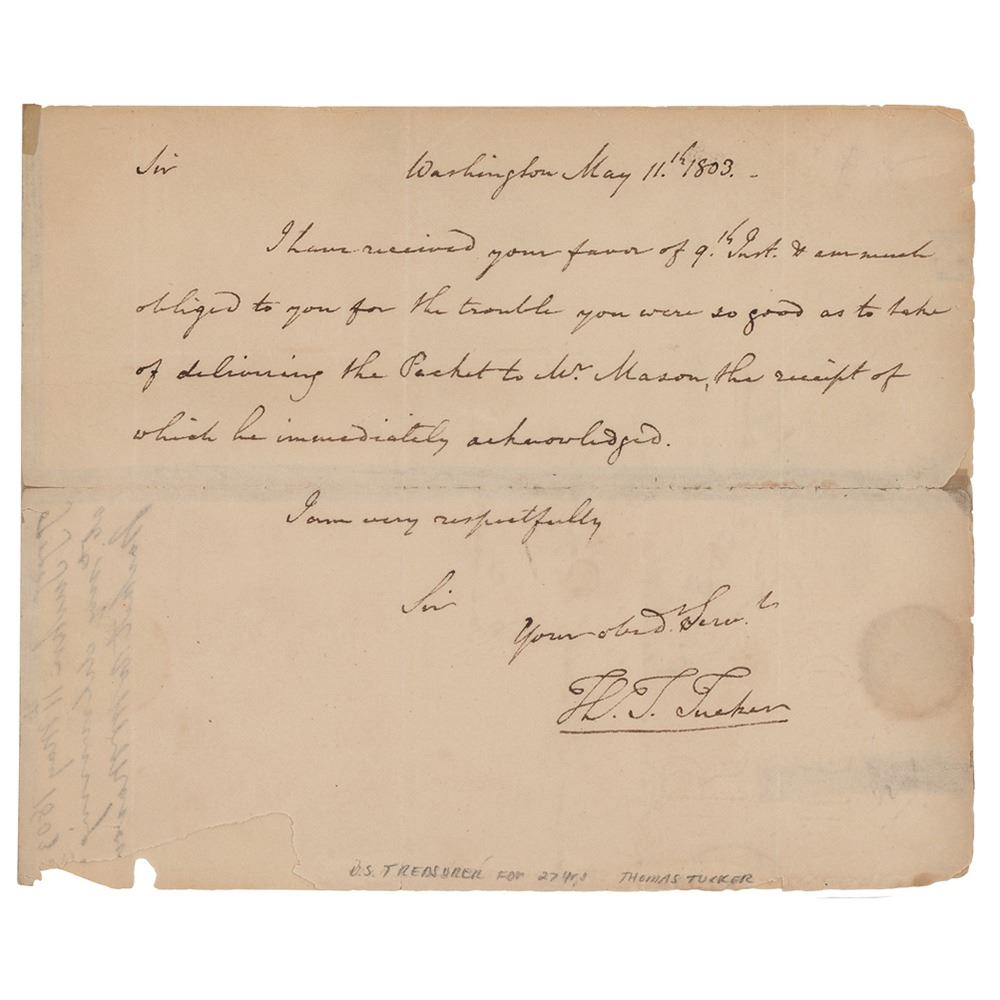 Sir Washington May 11.th 1803. -
I have received your favor of 9.th Inst. & am much
obliged to you for the trouble you were so good as to take
of delivering the Packet to Mr. Mason, the receipt of
which he immediately acknowledged.
I am very respectfully
Sir
Your obed.t Serv.t
Th. T. Tucker
U.S. TREASURER FOR 27 Yrs THOMAS TUCKER